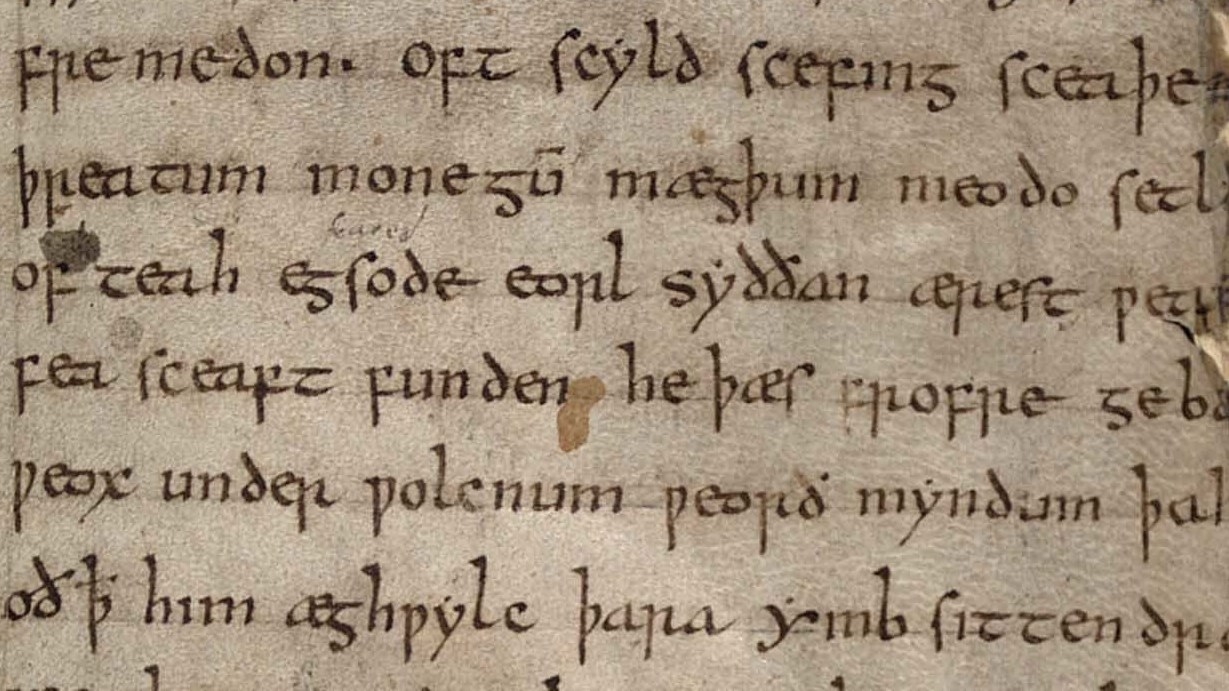 fremedon. Oft scyld scefing sceaþe
þreatum monegū mægþum meodo setl
of teah egsode eorl syððan ærest ƿea
fea sceaft funden he þæs frofre geba
ƿeox under ƿolcnum ƿeorð myndum þah
oð ꝥ him æghƿylc þara ymb sittendr